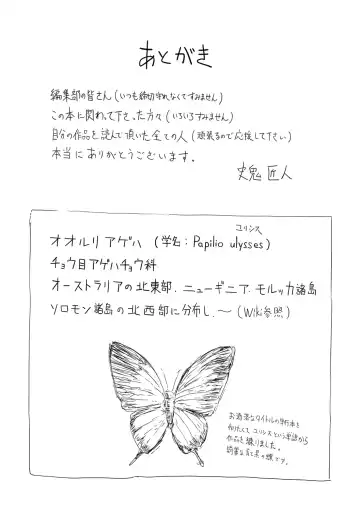 あとがき
編集部の皆さん(いつも締切守れなくてすみません)
この本に関わって下さった方々(いろいろすみません)
自分の作品を読んで頂いた全ての人(頑張るので応援して下さい)
本当にありがとうございます。
史鬼匠人
ユリシス
オオルリアゲハ (学名:Papilio ulysses)
チョウ目アゲハチョウ科
オーストラリアの北東部、ニューギニア、モルッカ諸島
ソロモン諸島の北西部に分布し、〜(Wiki参照)
お洒落なタイトルの単行本を
ユリシスという単語から
作品を練りました。
綺麗な青と黒の蝶です。